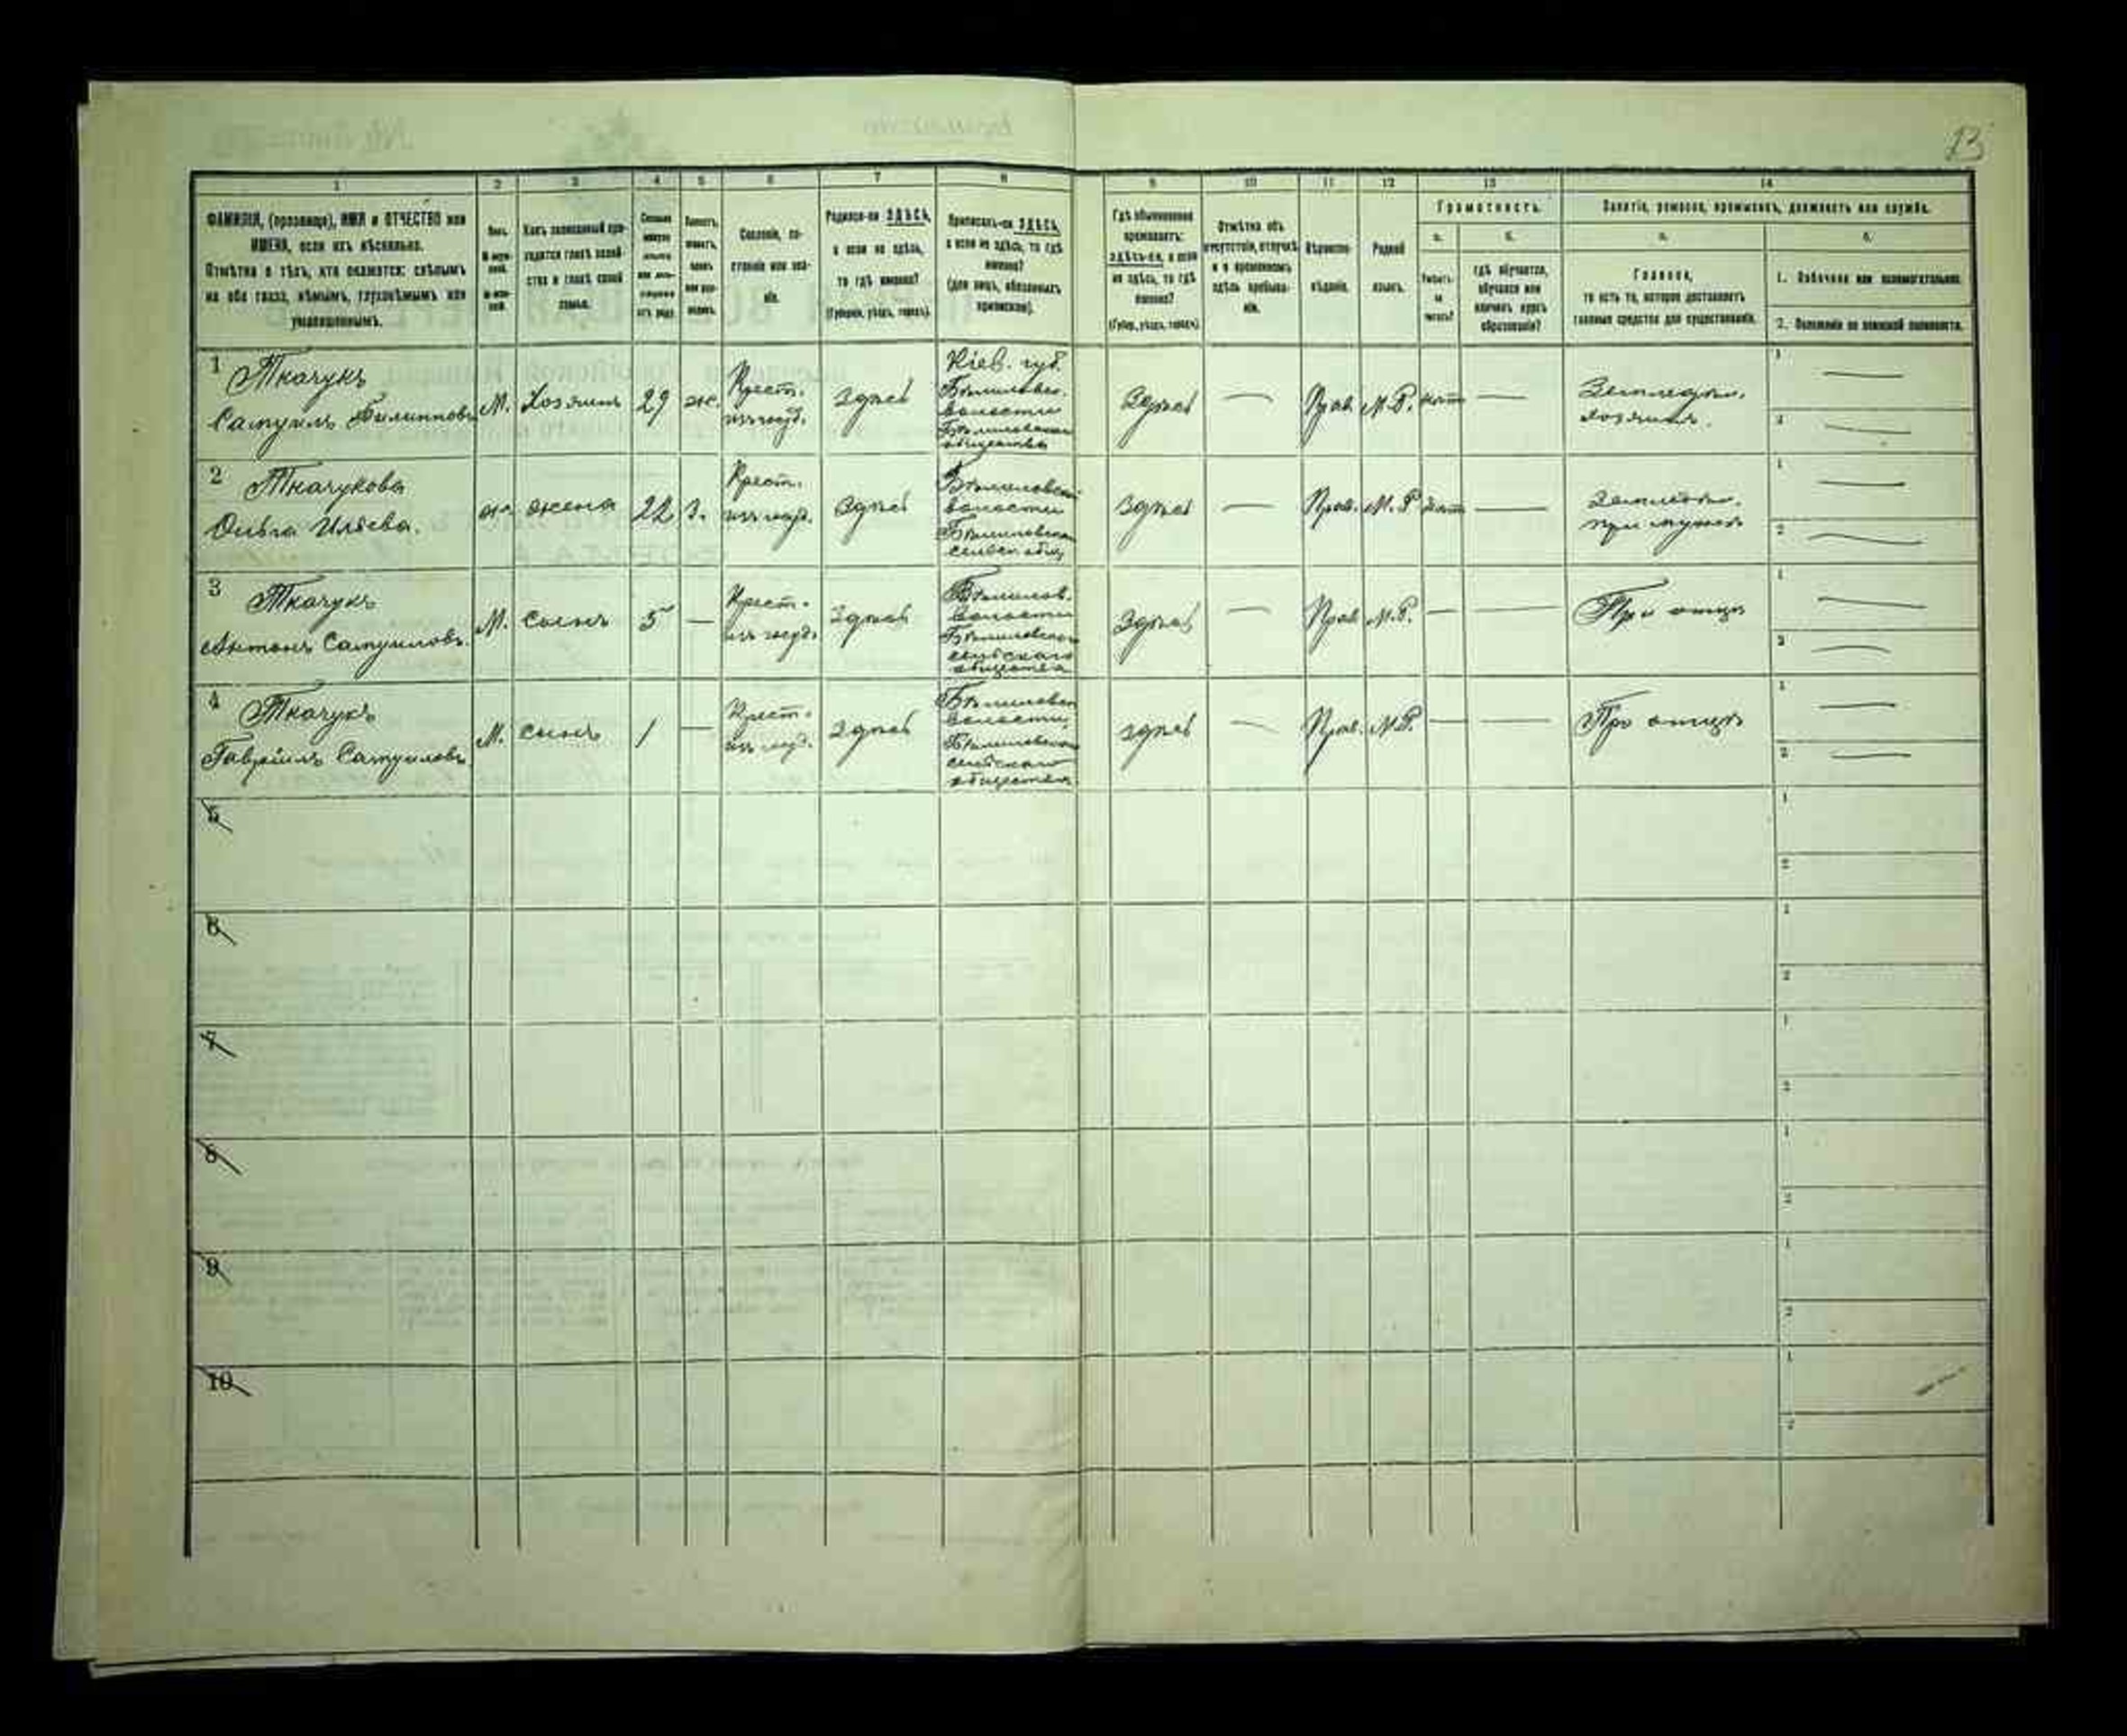 13
1 2 3 4 5 6 7 8 9 10 11 12 13 14
ФАМИЛІЯ, (прозвище), ИМЯ и ОТЧЕСТВО или
ИМЕНА, если ихъ нѣсколько.
Отмѣтка о тѣхъ, кто окажется: слѣпымъ
на оба глаза, нѣмымъ, глухонѣмымъ или
умалишеннымъ.
Полъ.
Какъ записанный при-
ходится главѣ хозяй-
ства и главѣ своей
семьи.
Сословіе, со-
стояніе или зва-
ніе.
Родился-ли ЗДѢСЬ,
а если не здѣсь,
то гдѣ именно?
(Губернія, уѣздъ, городъ).
Приписанъ-ли ЗДѢСЬ,
а если не здѣсь, то гдѣ
именно?
(для лицъ, обязанныхъ
припискою).
Гдѣ обыкновенно
проживаетъ:
ЗДѢСЬ-ли, а если
не здѣсь, то гдѣ
именно?
(Губер., уѣздъ, городъ).
Отмѣтка объ
отсутствіи, отлучкѣ
и о временномъ
здѣсь пребыва-
ніи.
Вѣроиспо-
вѣданіе.
Родной
языкъ.
Грамотность.
а. б.
Умѣетъ-
ли
читать?
гдѣ обучается,
обучался или
кончилъ курсъ
образованія?
Занятіе, ремесло, промыселъ, должность или служба.
а. б.
Главное,
то есть то, которое доставляетъ
главныя средства для существованія.
1. Побочное или вспомогательное.
2. Положеніе по воинской повинности.
1 Ткачукъ
Самуилъ Филипповъ
М. Хозяинъ 29 ж.
Крест.
изъ госуд.
Здѣсь
Кіев. губ.
Бѣлиловск.
волости
Бѣлиловскаго
общества
Здѣсь — Прав. М.Р. нѣт —
Земледѣл.
хозяинъ.
1 —
2 —
2 Ткачукова
Ольга Ильева.
ж. жена 22 з.
Крест.
изъ госуд.
Здѣсь
Бѣлиловской
волости
Бѣлиловскаго
сельск. общ.
Здѣсь — Прав. М.Р. нѣт —
Земледѣл.
при мужѣ
1 —
2 —
3 Ткачукъ
Антонъ Самуиловъ.
М. сынъ 5 —
Крест.
изъ госуд.
Здѣсь
Бѣлилов.
волости
Бѣлиловскаго
сельскаго
общества
Здѣсь — Прав. М.Р. — —
При отцѣ
1 —
2 —
4 Ткачукъ
Гавріилъ Самуиловъ
М. сынъ 1 —
Крест.
изъ госуд.
Здѣсь
Бѣлиловск.
волости,
Бѣлиловскаго
сельскаго
общества.
здѣсь — Прав. М.Р. — —
При отцѣ
1 —
2 —
5
1
2
6
1
2
7
1
2
8
1
2
9
1
2
10
1
2